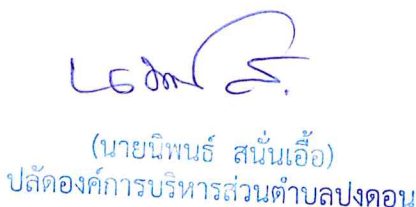 (นายนิพนธ์ สนั่นเอื้อ)
ปลัดองค์การบริหารส่วนตำบลปงดอน